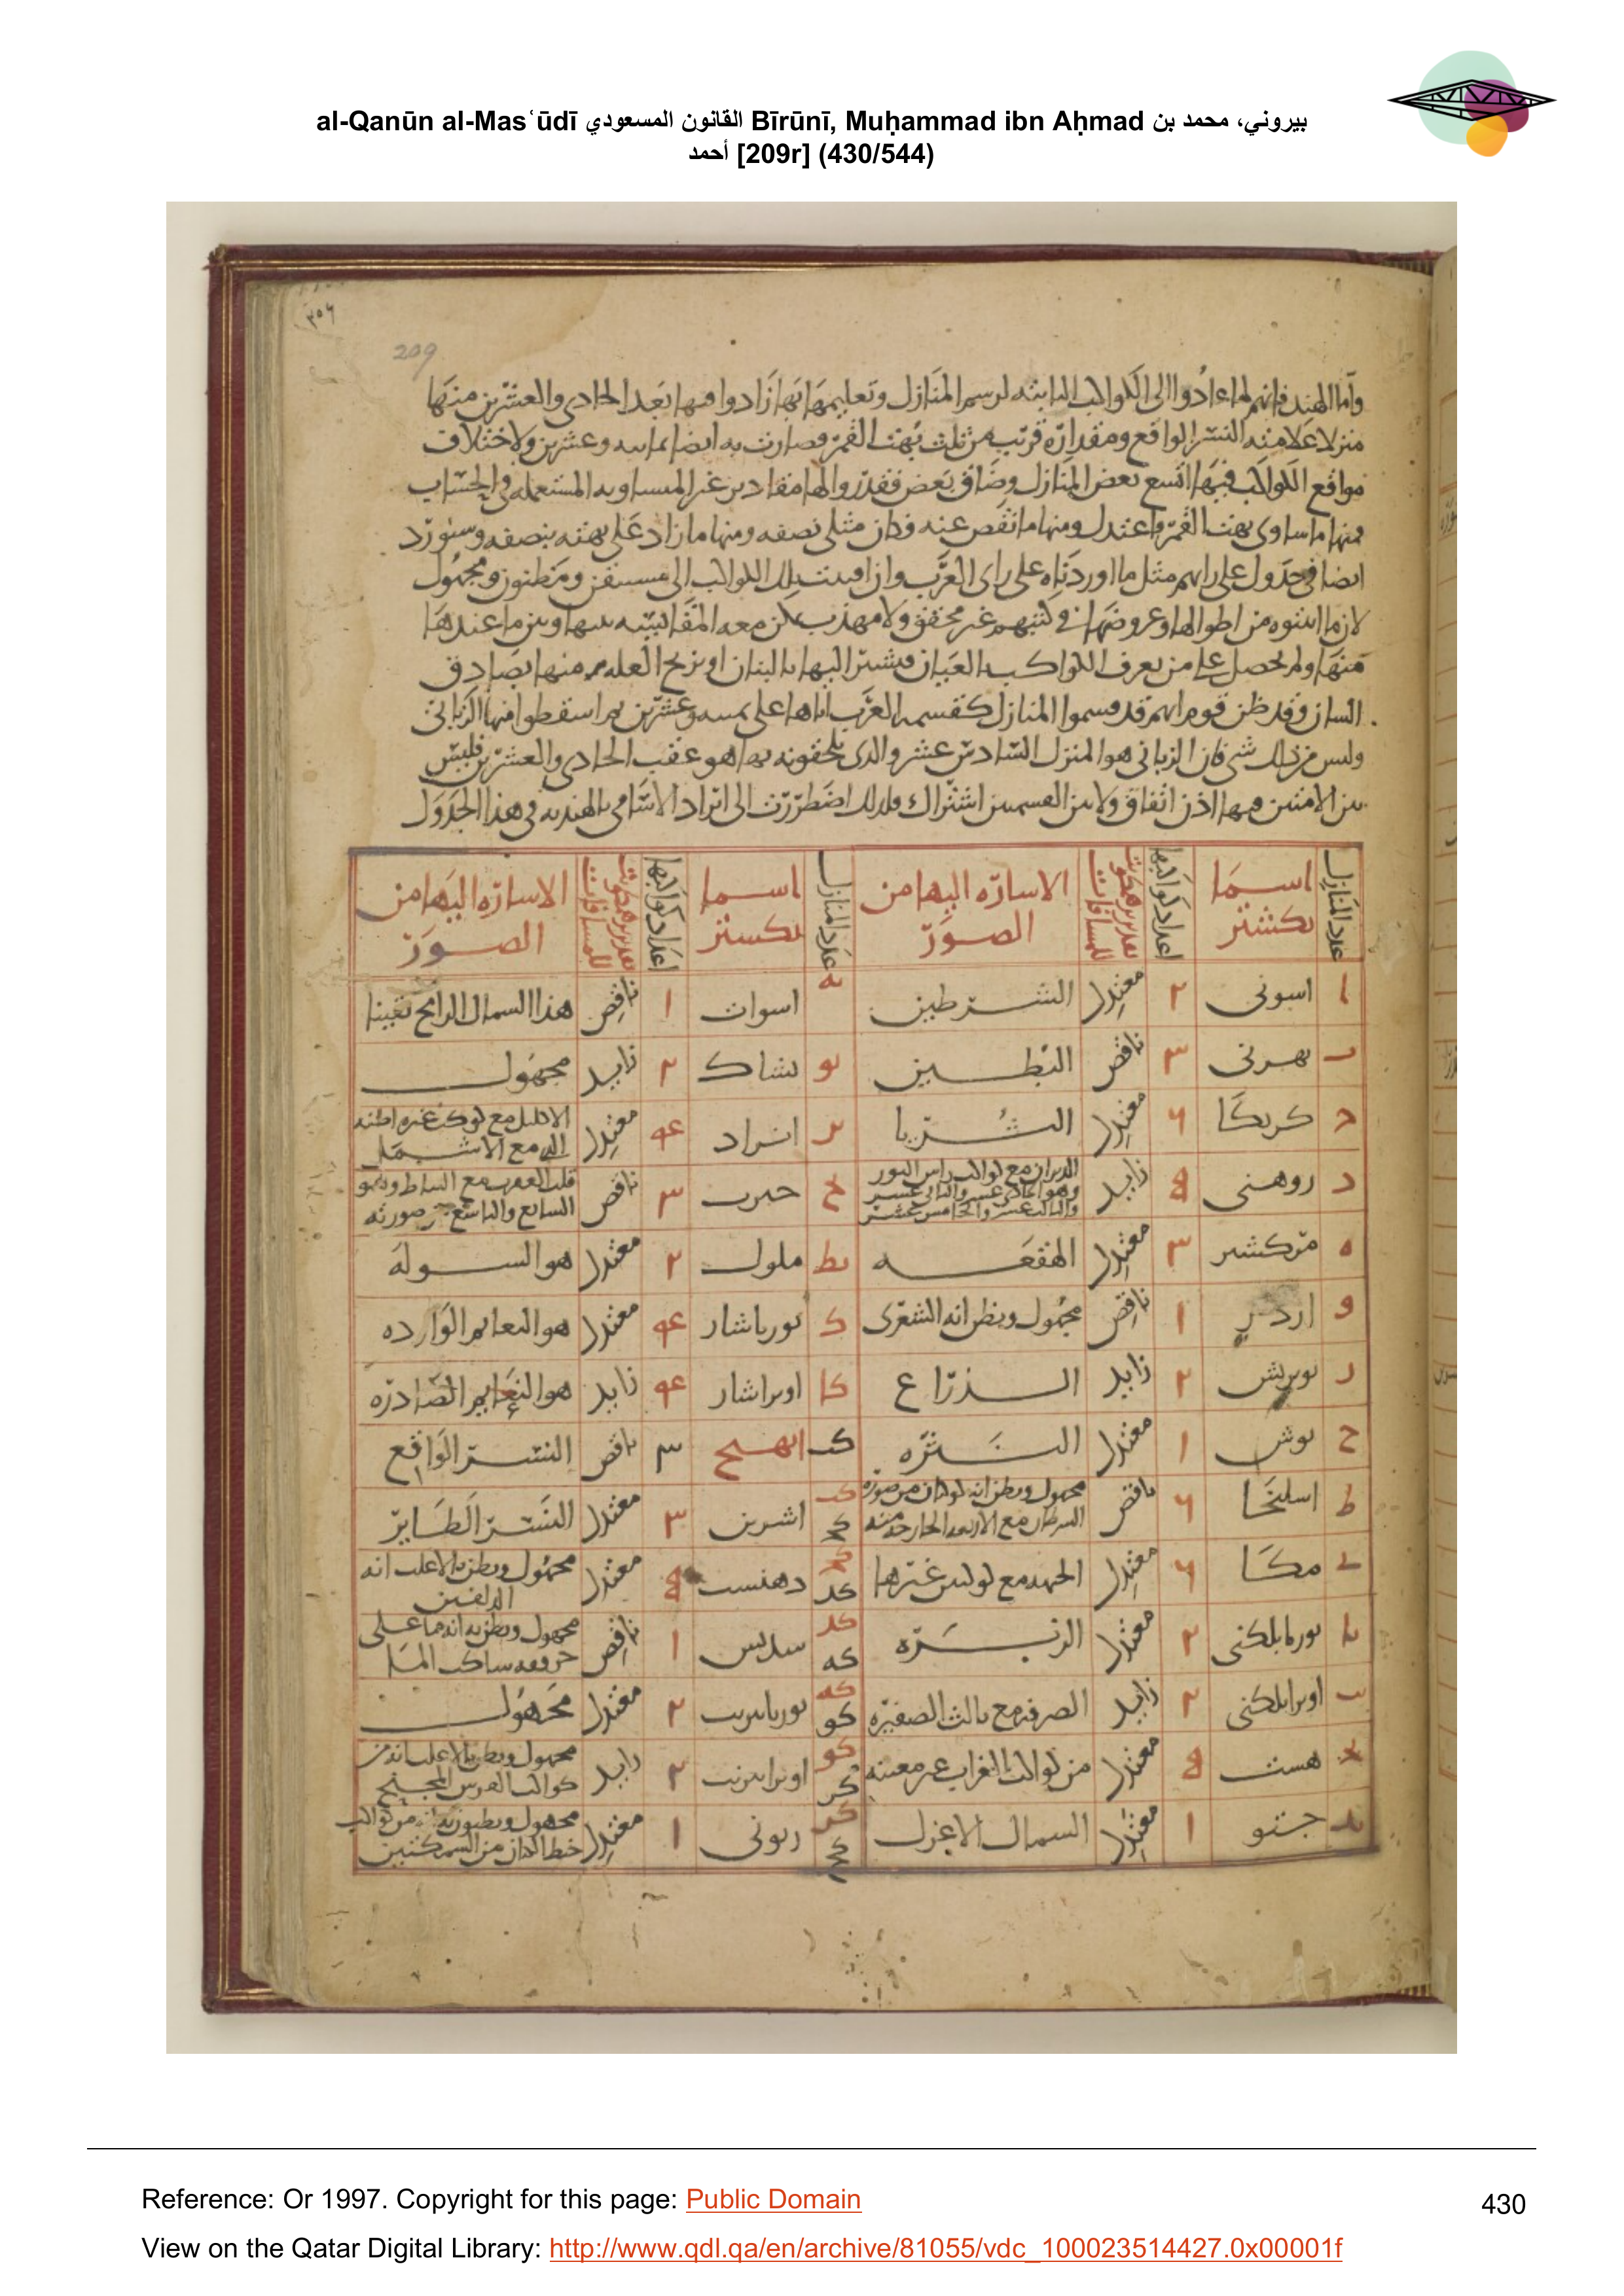 al-Qanūn al-Masʿūdī القانون المسعودي Bīrūnī, Muḥammad ibn Aḥmad بيروني، محمد بن
أحمد [209r] (430/544)
٣٠٦
209
واما الهند فانهم لما عادوا الى الكواكب الثابته لرسم المنازل وتعليمها بها زادوا فيها بعد الحادى والعشرين منها
منزلا علامته النسر الواقع ومقداره قريب من ثلث بهت القمر وصارت به ايضا ثمانيه وعشرين ولاختلاف
مواقع الكواكب فيها اتسع بعض المنازل وضاق بعض فقدروا لها مقادير غير المتساويه المستعمله فى الحساب
فمنها ما ساوى بهت القمر واعتدل ومنها ما نقص عنه فكان مثل نصفه ومنها ما زاد على بهته بنصفه وسنورد
ايضا فى جدول على رايهم مثل ما اوردناه على راى العرب وان اقسمت تلك الكواكب الى مستيقن ومظنون ومجهول
لان ما اثبتوه من اطوالها وعروضها فى كتبهم غير محقق ولا مهذب يمكن معه المقايسه بينها وبين ما عندها
منها ولم نحصل على من يعرف الكواكب بالعيان فيشير اليها بالبنان او يزيح العله منها بصادق
اللسان وقد ظن قوم انهم قد قسموا المنازل كقسمه العرب اياها على سبعه وعشرين ثم اسقطوا منها الزبانى
وليس من ذلك شى فان الزبانى هو المنزل السادس عشر والذى يلحقونه بها هو عقب الحادى والعشرين فليس
بين الامرين فيها اذن اتفاق ولا بين القسمين اشتراك ولذلك اضطررت الى ايراد الاسامى بالهنديه فى هذا الجدول
عدد المنازل اسما نكشتر اعداد كواكبها الاساره اليها من الصور عدد المنازل اسما نكستر اعداد كواكبها الاساره اليها من الصور
ا اسونى ٢ معتدل الشرطين يه اسوات ١ ناقص هذا السماك الرامح تقينا
ب بهرنى ٣ ناقص البطين يو بشاك ٢ زايد مجهول
ج كرتكا ٦ معتدل الثريا يز انراد ۴ معتدل الاكليل مع كوكب غيره اظنه
د روهنى ٥ زايد الدبران مع كواكب راس الثور وهو الحادى عشر والثانى عشر والثالث عشر والخامس عشر يح جيرت ٣ ناقص قلب العقرب مع النياط
ه مركشر ٣ معتدل الهقعه يط مول ٢ معتدل هو الشوله
و اردر ١ ناقص مجهول ويظن انه الشعرى ك بورباشار ۴ معتدل هو النعايم الوارده
ز بونربش ٢ زايد الذراع كا اوتراشار ۴ زايد هو النعايم الصادره
ح بوش ١ معتدل النثره كب ابهج ٣ ناقص النسر الواقع
ط اسليخا ٦ ناقص مجهول ويظن انه كوكبان من صوره السرطان مع الاربعه الخارجه منه كب كج اشربن ٣ معتدل النسر الطاير
ى مكا ٦ معتدل الجبهه مع كوكبين غيرها كج كد دهنست ٥ معتدل مجهول ويظن بالاغلب انه الدلفين
يا بوربابلكنى ٢ معتدل الزبره كد كه ١ ناقص مجهول ويظن به انه ما على ساكب الما
يب اوترابلكنى ٢ زايد الصرفه مع ثالث الضفيره كه كو ٢ معتدل مجهول
يج هست ٥ معتدل من كواكب الغراب غير معينه كو كز ٢ زايد مجهول ويظن بالاغلب انه من كواكب الفرس المجنح
يد جتتو ١ معتدل السماك الاعزل كز كح ريونى ١ معتدل مجهول ويظنون انه من كواكب خيط الكتان من السمكتين
Reference: Or 1997. Copyright for this page: Public Domain
View on the Qatar Digital Library: http://www.qdl.qa/en/archive/81055/vdc_100023514427.0x00001f
430